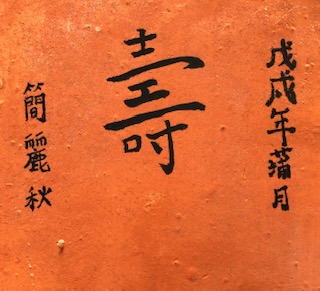 戊戌年蒲月
壽
簡麗秋